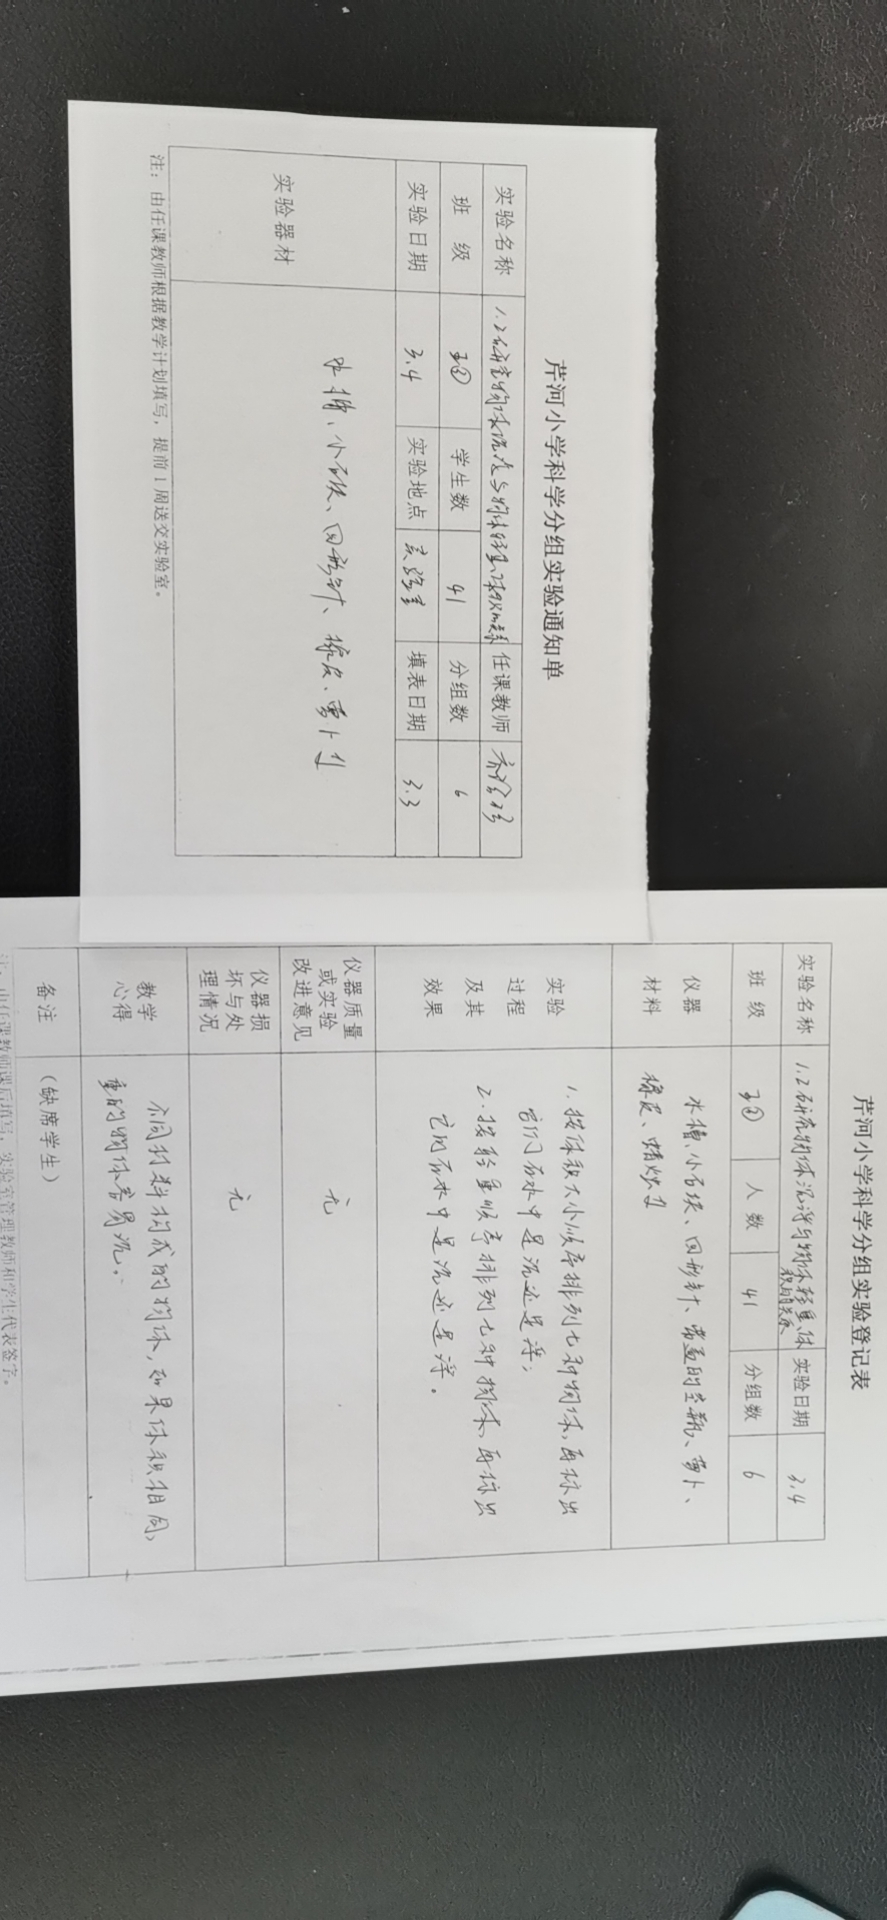 芹河小学科学分组实验通知单
实验名称 1.2研究物体沉浮与物体轻重、体积的关系 任课教师
班 级 学生数 41 分组数 6
实验日期 3.4 实验地点 实验室 填表日期 3.3
实验器材 水槽、小石块、回形针、橡皮、萝卜
注：由任课教师根据教学计划填写，提前1周送交实验室。
芹河小学科学分组实验登记表
实验名称 1.2研究物体沉浮与物体轻重、体积的关系 实验日期 3.4
班 级 人 数 41 分组数 6
仪器
材料
水槽、小石块、回形针、带盖的空瓶、萝卜、
橡皮、蜡烛
实验
过程
及其
效果
1. 按体积大小顺序排列七种物体，再标出
它们在水中是沉还是浮；
2. 按轻重顺序排列七种物体，再标出
它们在水中是沉还是浮。
仪器质量
或实验
改进意见
无
仪器损
坏与处
理情况
无
教学
心得
不同材料构成的物体，如果体积相同，
重的物体容易沉。
备注 （缺席学生）
注：由任课教师课后填写，实验室管理教师和学生代表签字。